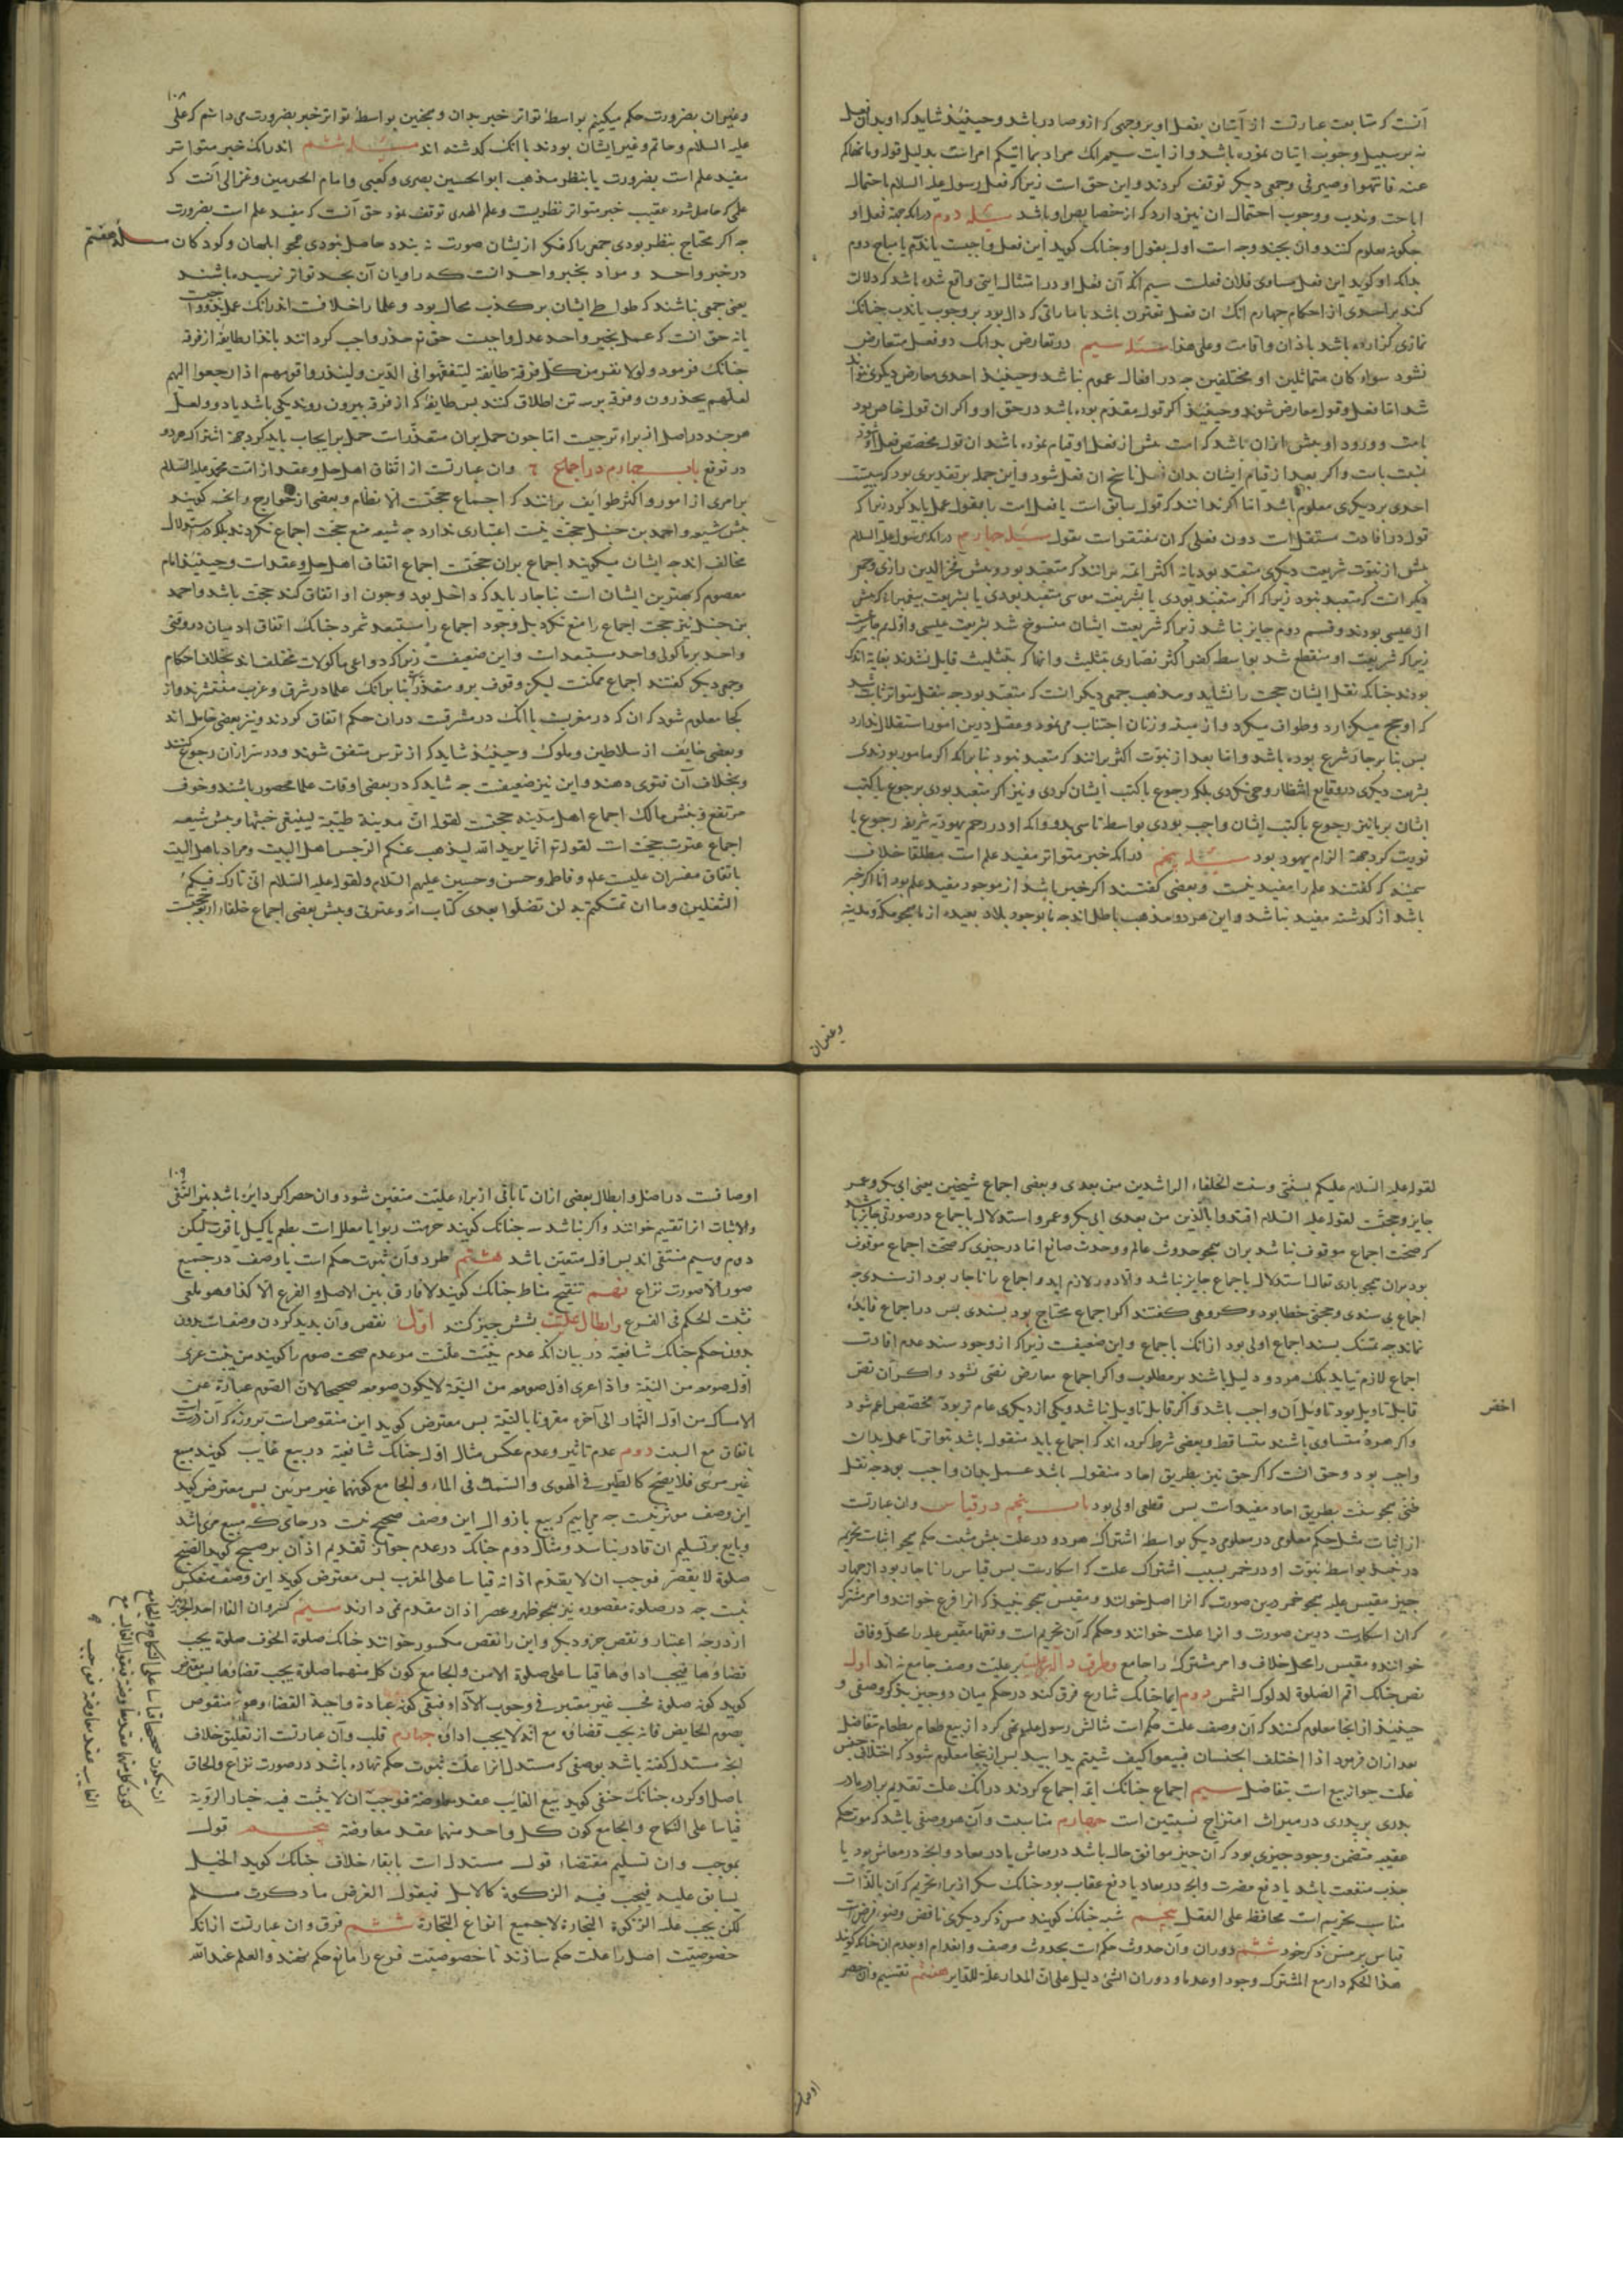 آنست که متابعت عبارتست از اتیان بفعل او بر وجهی که ازو صادر باشد وحینئذ شاید که او بدان فعل
نه بر سبیل وجوب اتیان نموده باشد و از ایت سیم انک مراد بما اتیکم امرست بدلیل قوله وما نهاکم
عنه فانتهوا وصیرفی وجمعی دیکر توقف کردند واین حق است زیرا که فعل رسول علیه السلام با احتمال
اباحت وندب ووجوب احتمال ان نیز دارد که از خصایص او باشد مسئله دوم در انکه جهة فعل او
چکونه معلوم کنند وان بچند وجه است اول بقول او چنانک کوید این فعل واجبست یا ندب یا مباح دوم
بدانکه او کوید این فعل مساوی فلان فعلست سیم انکه آن فعل او در امتثال ایتی واقع شده باشد که دلالت
کند بر احدی از احکام چهارم انک ان فعل مقترن باشد با ماراتی که دال بود بر وجوب یا ندب چنانک
نمازی کزارده باشد باذان واقامت وعلی هذا مسئله سیم در تعارض بدانک دو فعل متعارض
نشود سواء کان متماثلین او مختلفین چه در افعال عموم نباشد وحینئذ احدی معارض دیکری نتواند
شد اما فعل وقول معارض شوند وحینئذ اکر قول مقدم بوده باشد در حق او واکر ان قول خاص بود
بامت وورود او پیش ازان باشد که امت پیش از فعل او قیام نموده باشد ان قول مخصص فعل او شود
بنسبت بامت واکر بعد از قیام ایشان بدان فعل ناسخ ان فعل شود واین جمله بر تقدیری بود که سبقت
احدی بر دیکری معلوم باشد اما اکر ندانند که قول سابق است یا فعل امت را بقول عمل باید کرد زیرا که
قول در افادت مستقل است دون فعل که ان مفتقرست بقول مسئله چهارم در انکه رسول علیه السلام
پیش از نبوت بشریعت دیکری متعبد بود یا نه اکثر ایمه برانند که متعبد بود وپیش فخر الدین رازی وجمعی
دیکر انست که متعبد نبود زیرا که اکر متعبد بودی یا بشریعت موسی متعبد بودی یا بشریعت پیغمبرانی که پیش
از عیسی بودند وقسم دوم جایز نباشد زیرا که شریعت ایشان منسوخ شد بشریعت عیسی واول هم جایز نیست
زیرا که شریعت او منقطع شد بواسطه کفر اکثر نصاری بتثلیث وانها که بتثلیث قایل نشدند بغایة اندک
بودند چنانکه نقل ایشان حجت را نشاید ومذهب جمعی دیکر انست که متعبد بود چه بنقل متواتر ثابت شد
که او حج میکزارد وطواف میکرد واز میته وزنا ان اجتناب می نمود وعقل درین امور استقلال ندارد
پس بنابر جاز شرع بوده باشد واما بعد از نبوت اکثر برانند که متعبد نبود بنابر انکه اکر مامور بودی
بشریعت دیکری در وقایع انتظار وحی نکردی بلکه رجوع با کتب ایشان کردی ونیز اکر متعبد بودی برجوع با کتب
ایشان بر ما نیز رجوع با کتب ایشان واجب بودی بواسطه تاسی بدو وانکه او در رجم یهودیه شریفه رجوع با
توریت کرد جهة الزام یهود بود مسئله پنجم در انکه خبر متواتر مفید علم است مطلقا خلاف
سمنیه که کفتند علم را مفید نیست وبعضی کفتند اکر خبر باشد از موجود مفید علم بود اما اکر خبر
باشد از کذشته مفید نباشد واین هر دو مذهب باطل اند چه ما بوجود بلاد بعیده از ما همچو مکه ومدینه
وغیران
۱۰۸
وغیران بضرورت حکم میکنیم بواسطه تواتر خبر بدان وهمچنین بواسطه تواتر خبر بضرورت می دانیم که علی
علیه السلام وحاتم وغیر ایشان بودند با انک کذشته اند مسئله ششم اندر انک خبر متواتر
مفید علم است بضرورت یا بنظر مذهب ابو الحسین بصری وکعبی وامام الحرمین وغزالی آنست که
علمی که حاصل شود عقیب خبر متواتر نظریست وعلم الهدی توقف نمود حق آنست که مفید علم است بضرورت
چه اکر محتاج بنظر بودی جمعی را که فکر از یشان صورت نه بندد حاصل نبودی همچو ابلهان وکودکان مسئله هفتم
در خبر واحد ومراد بخبر واحد انست که راویان آن بحد تواتر نرسیده باشند
یعنی جمعی نباشند که تواطی ایشان بر کذب محال بود وعلما را خلافست اندر انک عمل بخبر واحد واجبست
یا نه حق انست که عمل بخبر واحد عدل واجبست حق تع حذر واجب کردانید بانذار طایفه از فرقه
چنانک فرمود ولولا نفر من کل فرقة طائفة لیتفقهوا فی الدین ولینذروا قومهم اذا رجعوا الیهم
لعلهم یحذرون وفرقه بر سه تن اطلاق کنند پس طایفه که از فرقه بیرون روند یکی باشد یا دو ولعل
هر چند در اصل از براء ترجیست اما چون حمل بران متعذرست حمل بر ایجاب باید کرد جهة اشتراک هر دو
در توقع باب چهارم در اجماع وان عبارتست از اتفاق اهل حل وعقد از امت محمد علیه السلام
بر امری از امور واکثر طوایف برانند که اجماع حجتست الا نظام وبعضی از خوارج وانچه کویند
پیش شیعه واحمد بن حنبل حجت نیست اعتباری ندارد چه شیعه منع حجت اجماع نکردند بلکه در استدلال
مخالف اند چه ایشان میکویند اجماع بران حجتست اجماع اتفاق اهل حل وعقد است وحینئذ امام
معصوم که بهترین ایشان است ناچار باید که داخل بود وچون او اتفاق کند حجت باشد واحمد
بن حنبل نیز حجت اجماع را منع نکرد بل وجود اجماع را مستبعد شمرد چنانک اتفاق ادمیان در وقتی
واحد بر ماکولی واحد مستبعد است واین ضعیفست زیرا که دواعی ماکولات مختلف اند بخلاف احکام
وجمعی دیکر کفتند اجماع ممکنست لیکن وقوف برو متعذر بنابر انک علما در شرق وغرب منتشرند واز
کجا معلوم شود که ان که در مغربست با انک در مشرقست دران حکم اتفاق کردند ونیز بعضی خامل اند
وبعضی خایف از سلاطین وملوک وحینئذ شاید که از ترس متفق شوند ودر سر ازان رجوع کنند
وبخلاف آن فتوی دهند واین نیز ضعیفست چه شاید که در بعضی اوقات علما محصور باشند وخوف
مرتفع وپیش مالک اجماع اهل مدینه حجتست لقوله ان مدینة طیبة لینفی خبثها وپیش شیعه
اجماع عترت حجت است لقوله تع انما یرید الله لیذهب عنکم الرجس اهل البیت ومراد باهل البیت
باتفاق مفسران علیست وفاطمه وحسن وحسین علیهم السلام ولقوله علیه السلام انی تارک فیکم
الثقلین وما ان تمسکتم به لن تضلوا بعدی کتاب الله وعترتی وپیش بعضی اجماع خلفاء اربعه حجتست
لقوله علیه السلام علیکم بسنتی وسنت الخلفاء الراشدین من بعدی وبعضی اجماع شیخین یعنی ابی بکر وعمر
جایز وحجتست لقوله علیه السلام اقتدوا بالذین من بعدی ابی بکر وعمر واستدلال باجماع در صورتی جایز باشد
که صحت اجماع موقوف نباشد بران همچو حدوث عالم ووحدت صانع اما در چیزی که صحت اجماع موقوف
بود بران همچو باری تعالی استدلال باجماع جایز نباشد والا دور لازم اید واجماع را ناچار بود از سندی چه
اجماع بی سندی وحجتی خطا بود وکروهی کفتند اکر اجماع محتاج بود بسندی پس در اجماع فایده
نماند چه تمسک بسند اجماع اولی بود از انک باجماع واین ضعیفست زیرا که از وجود سند عدم افادت
اجماع لازم نیاید بلک هر دو دلیل باشند بر مطلوب واکر اجماع معارض نصی شود واکر آن نص
قابل تاویل بود تاویل آن واجب باشد واکر قابل تاویل نباشد ویکی از دیکری عام تر بود مخصص اعم شود
اخص
واکر هردو متساوی باشند متساقط وبعضی شرط کرده اند که اجماع باید منقول باشد بتواتر تا عمل بدان
واجب بود وحق انست که اکر حق نیز بطریق احاد منقول باشد عمل بدان واجب بود چه نقل
ظنی همچو سنت بطریق احاد مفید است پس قطعی اولی بود باب پنجم در قیاس وان عبارتست
از اثبات مثل حکم معلومی در معلومی دیکر بواسطه اشتراک هر دو در علت پیش مثبت حکم همچو اثبات تحریم
در نبیذ بواسطه ثبوت او در خمر بسبب اشتراک علت که اسکارست پس قیاس را ناچار بود از چهار
چیز مقیس علیه همچو خمر درین صورت که انرا اصل خوانند ومقیس همچو نبیذ که انرا فرع خوانند وامر مشترک
که ان اسکارست درین صورت وانرا علت خوانند وحکم که آن تحریم است وفقها مقیس علیه را محل وفاق
خوانند ومقیس را محل خلاف وامر مشترک را جامع وطرق داله بر علیت وصف جامع نه اند اول
نص چنانک اقم الصلوة لدلوک الشمس دوم ایما چنانک شارع فرق کند در حکم میان دو چیز بذکر وصفی و
حینئذ از انجا معلوم کنند که آن وصف علت حکم است مثالش رسول علیه السلام نهی کرد از بیع طعام بطعام متفاضل
بعد ازان فرمود اذا اختلف الجنسان فبیعوا کیف شئتم یدا بید پس از ینجا معلوم شود که اختلاف جنس
علت جواز بیع است بتفاضل سیم اجماع چنانک ایمه اجماع کردند در انک علت تقدیم برادر مادر
پدری بر پدری در میراث امتزاج نسبتین است چهارم مناسبت وآن هر وصفی باشد که موجب حکم
عقیبه متضمن وجود چیزی بود که آن چیز موافق حال باشد در معاش یا در معاد وانچه در معاش بود یا
جذب منفعت باشد یا دفع مضرت وانچه در معاد یا دفع عقاب بود چنانک سکر از براء تحریم که آن بالذات
مناسب تحریم است محافظة علی العقل پنجم شبه چنانک کویند مس ذکر دیکری ناقض وضو
قیاس بر مس ذکر خود ششم دوران وآن حدوث حکم است بحدوث وصف وانعدام او بعدم ان چنانکه کویند
هذا الحکم دار مع المشترک وجودا وعدما ودوران الشئ دلیل علی ان المدار علة للدایر هفتم تقسیم وان حصر
اوصاف
۱۰۹
اوصافست در اصل وابطال بعضی ازان تا باقی از براء علیت متعین شود وان حصر اکر دایر باشد بین النفی
والاثبات انرا تقسیم خوانند واکر نباشد سبر چنانک کویند حرمت ربوا یا معلل است بطعم یا کیل یا قوت لیکن
دوم وسیم منتفی اند پس اول متعین باشد هشتم طرد وآن ثبوت حکم است با وصف در جمیع
صور الا صورت نزاع نهم تنقیح مناط چنانک کویند لا فارق بین الاصل والفرع الا کذا وهو ملغی
فثبت الحکم فی الفرع وابطال علیت بشش چیز کنند اول نقض وآن بدید کردن وصفست بدون
بدون حکم چنانک شافعیه در بیان انکه عدم تبییت علتست مر عدم صحت صوم را کویند من تعری
اول صومه من النیة واذا عری اول صومه من النیة لا یکون صومه صحیحا لان الصوم عبارة عن
الامساک من اول النهار الی آخره مقرونا بالنیة پس معترض کوید این منقوض است بروزه که آن درست
باتفاق مع السبب دوم عدم تاثیر وعدم عکس مثال اول چنانک شافعیه در بیع غایب کویند بیع
غیر مرئی فلا یصح کالطیر فی الهوی والسمک فی الماء والجامع کونهما غیر مرئیین پس معترض کوید
این وصف موثر نیست چه می بینیم که بیع با زوال این وصف صحیح نیست در جای که مبیع مرئی باشد
وبایع بر تسلیم ان قادر نباشد ومثال دوم چنانک در عدم جواز تقدیم اذان بر صبح کوید الصبح
صلوة لا یقصر فوجب ان لا یقدم اذانه قیاسا علی المغرب پس معترض کوید این وصف منعکس
نیست چه در صلوة مقصوره نیز همچو ظهر وعصر اذان مقدم نمی دارند سیم کسر وان الغاء احد الجزین
از درجه اعتبار ونقض جزو دیکر واین را نقض مکسور خوانند چنانک صلوة الخوف صلوة یجب
قضاؤها فیجب اداؤها قیاسا علی صلوة الامن والجامع کون کل منهما صلوة یجب قضاؤها پس معترض
کوید کونه صلوة نحسب غیر معتبر فی وجوب الاداء فبقی کونه عبادة واجبة القضاء وهو منقوض
بصوم الحایض فانه یجب قضاؤه مع انه لا یجب اداؤه چهارم قلب وآن عبارتست از تعلیق خلاف
انچه مستدل کفته باشد بوصفی که مستدل انرا علت ثبوت حکم نهاده باشد در صورت نزاع والحاق
باصل او کرده چنانک حنفی کوید بیع الغایب عقد معاوضة فوجب ان لا یثبت فیه خیار الرؤیة
قیاسا علی النکاح والجامع کون کل واحد منهما عقد معاوضة پنجم قول
بموجب وان تسلیم مقتضاء قول مستدل است بابقاء خلاف چنانک کوید الخیل
یسابق علیه فیجب فیه الزکوة کالابل فیقول الغرض ما ذکرت مسلم
لکن یجب علیه الزکوة التجارة لا جمیع انواع التجارة ششم فرق وان عبارتست از انک
خصوصیت اصل را علت حکم سازند تا خصوصیت فرع را مانع حکم نهند والعلم عند الله
ان یکون صحیحا قیاسا علی النکاح والجامع
کون کل منهما عقد معاوضة فیقول القالب بیع
الغایب عقد معاوضة فوجب